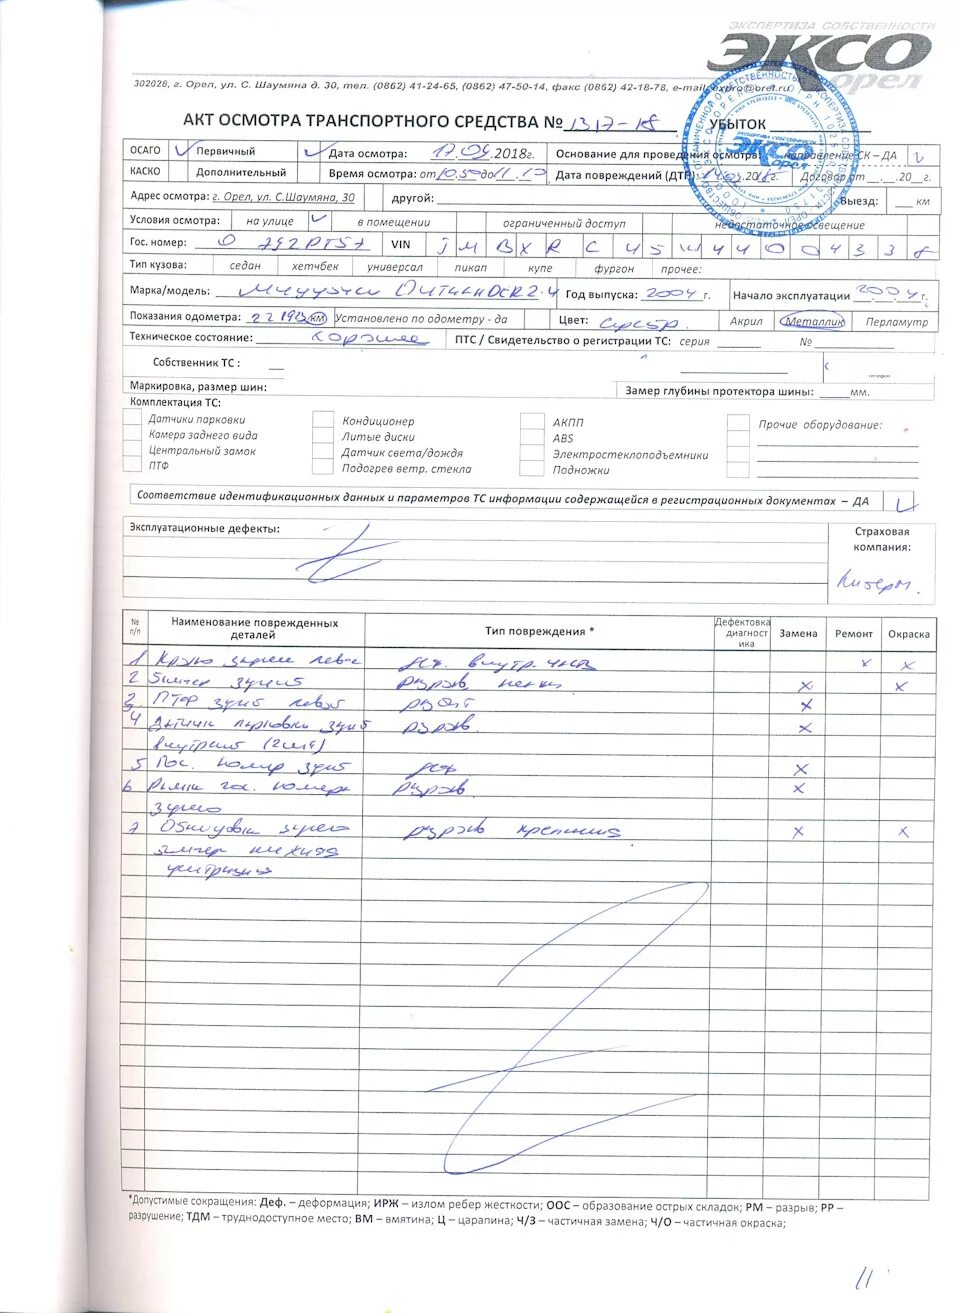 ЭКСПЕРТИЗА СОБСТВЕННОСТИ
ЭКСО
орел
302028, г. Орел, ул. С. Шаумяна д. 30, тел. (0862) 41-24-65, (0862) 47-50-14, факс (0862) 42-18-78, e-mail: expro@orel.ru
АКТ ОСМОТРА ТРАНСПОРТНОГО СРЕДСТВА № 1317-18 УБЫТОК
ОСАГО Первичный Дата осмотра: 17.04.2018г. Основание для проведения осмотра: направление СК – ДА
КАСКО Дополнительный Время осмотра: от 10.50 до 11.10 Дата повреждений (ДТП): 2018г. Договор от 20 г.
Адрес осмотра: г. Орел, ул. С.Шаумяна, 30 другой: Выезд: км
Условия осмотра: на улице в помещении ограниченный доступ недостаточное освещение
Гос. номер: О 792РТ57 VIN J M B X R C 4 5 W 4 4 0 0 4 3 3 8
Тип кузова: седан хетчбек универсал пикап купе фургон прочее:
Марка/модель: Год выпуска: 2004 г. Начало эксплуатации 2004 г.
Показания одометра: км Установлено по одометру - да Цвет: серебр. Акрил Металлик Перламутр
Техническое состояние: хорошее ПТС / Свидетельство о регистрации ТС: серия №
Собственник ТС : телефон
Маркировка, размер шин: Замер глубины протектора шины: мм.
Комплектация ТС:
Датчики парковки Кондиционер АКПП Прочие оборудование:
Камера заднего вида Литые диски ABS
Центральный замок Датчик света/дождя Электростеклоподъемники
ПТФ Подогрев ветр. стекла Подножки
Соответствие идентификационных данных и параметров ТС информации содержащейся в регистрационных документах – ДА
Эксплуатационные дефекты: Страховая
компания:
№ п/п Наименование поврежденных деталей Тип повреждения * Дефектовка диагностика Замена Ремонт Окраска
1 Крыло заднее левое деф. внутр. части х х
2 бампер задний х х
3 ПТФ задн левой х
4 Датчик парковки задн х
внутрен (2шт)
5 Гос. номер задн деф х
6 Рамка гос. номера х
заднего
7 Облицовка заднего крепления х х
бампер нижняя
*Допустимые сокращения: Деф. – деформация; ИРЖ – излом ребер жесткости; ООС – образование острых складок; РМ – разрыв; РР –
разрушение; ТДМ – труднодоступное место; ВМ – вмятина; Ц – царапина; Ч/З – частичная замена; Ч/О – частичная окраска;
11